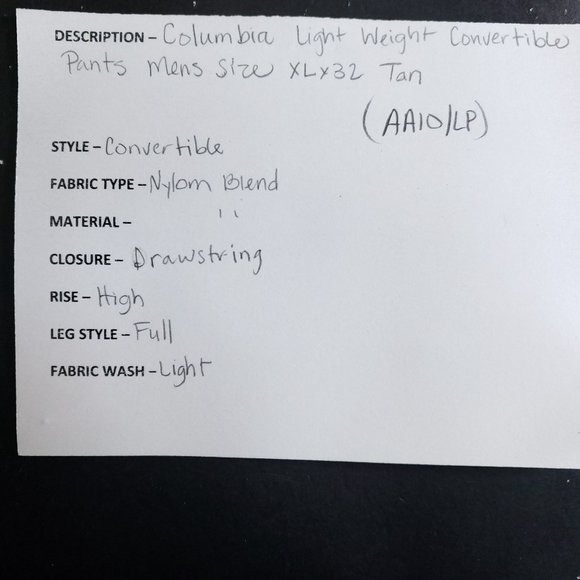 DESCRIPTION - Columbia Light Weight Convertible
Pants Mens Size XLx32 Tan
(AA10/LP)
STYLE - Convertible
FABRIC TYPE - Nylom Blend
MATERIAL - " 
CLOSURE - Drawstring
RISE - High
LEG STYLE - Full
FABRIC WASH - Light